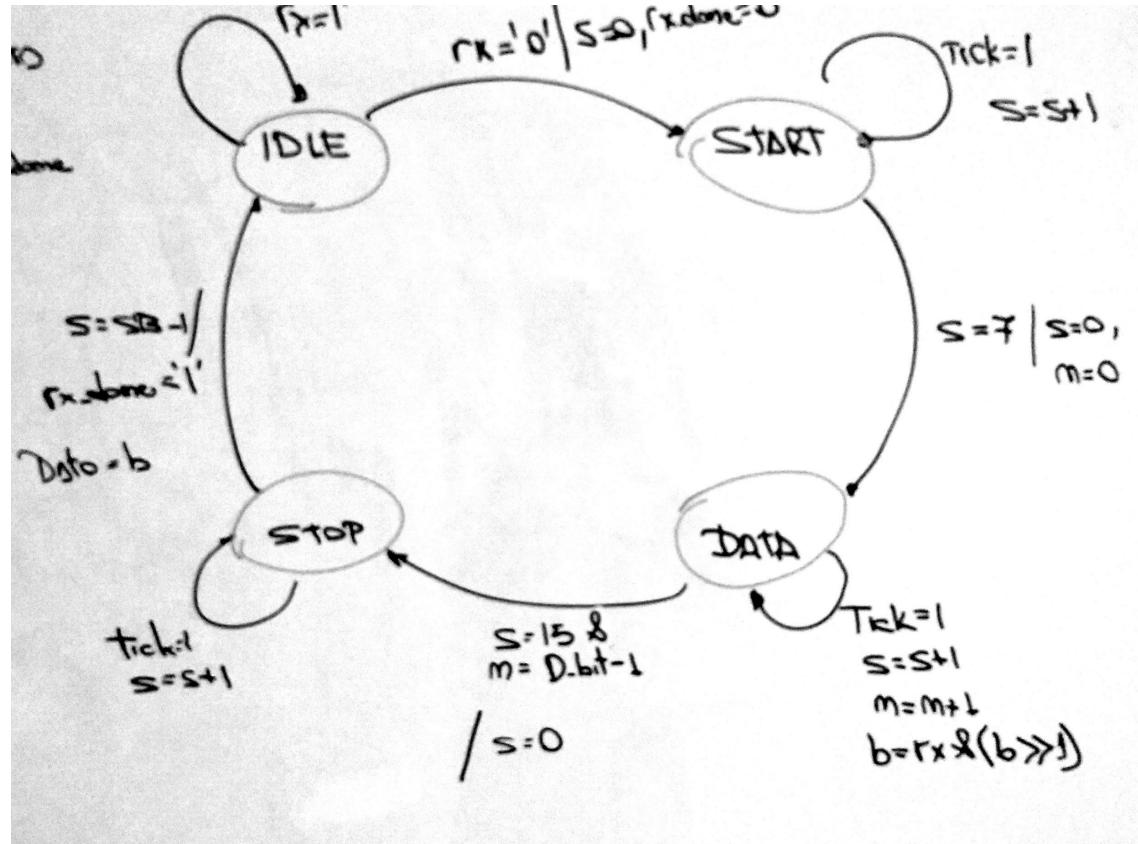 rx=1
rx='0' / s=0, rx_done=0
Tick=1
s=s+1
IDLE
START
s=SB-1 /
rx_done='1'
Dato=b
s=7 | s=0,
n=0
STOP
DATA
tick=1
s=s+1
s=15 &
n=D_bit-1
/ s=0
Tick=1
s=s+1
n=n+1
b=rx&(b>>1)